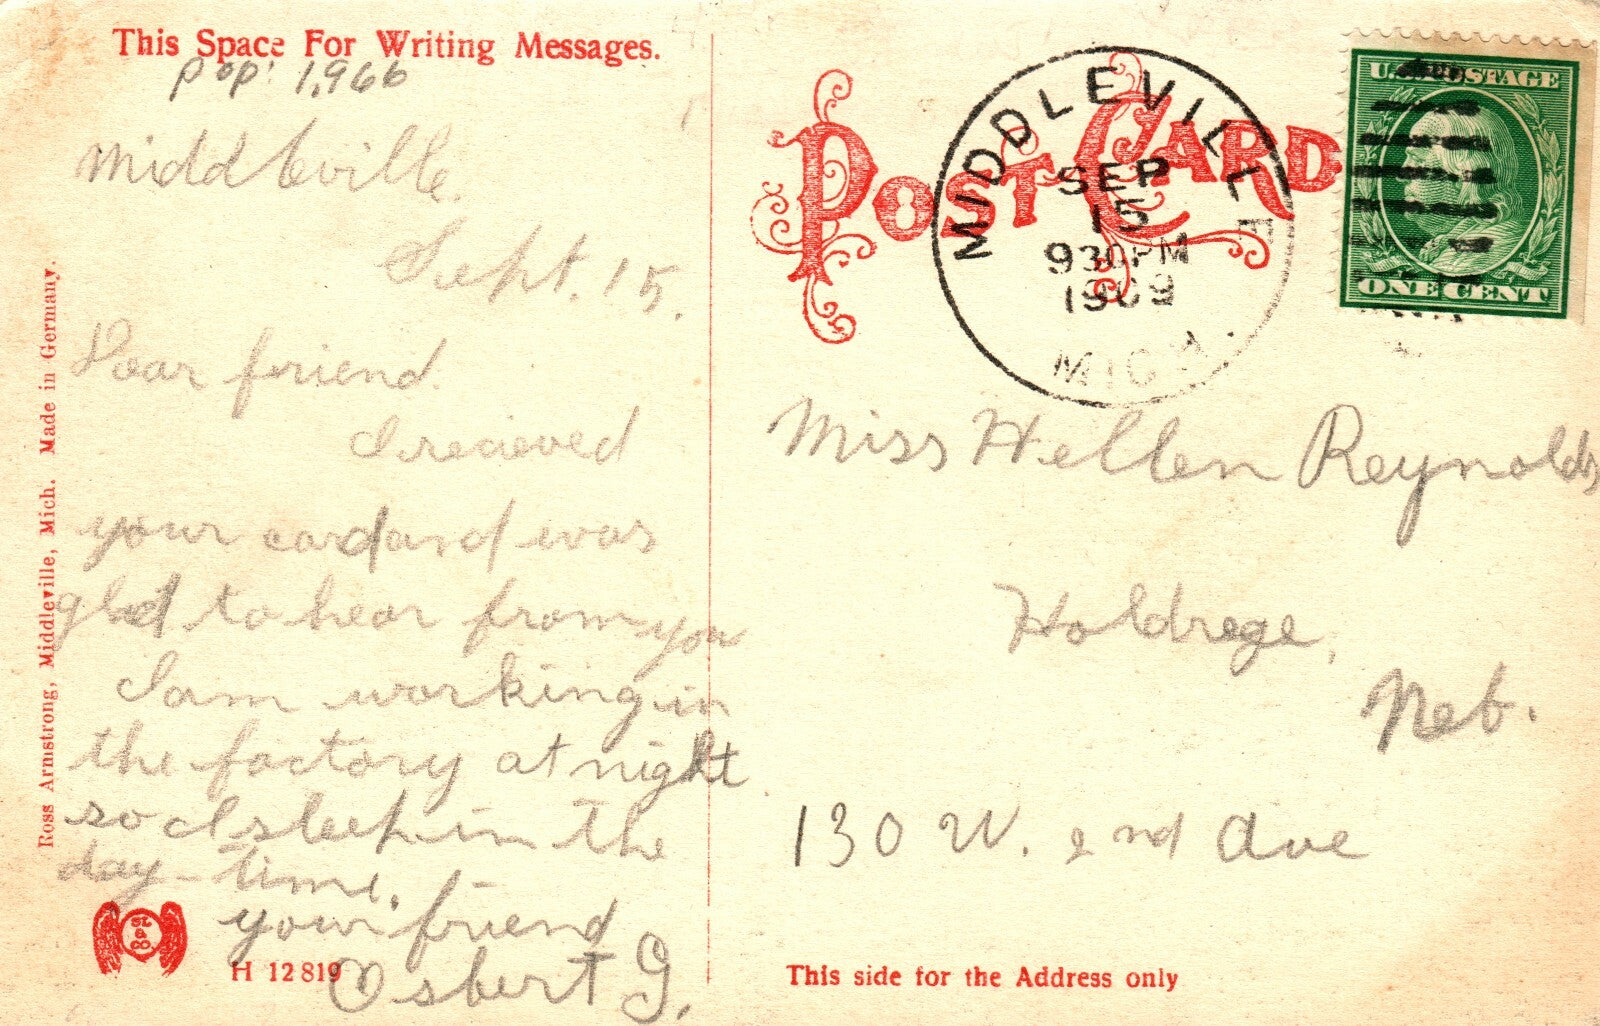 This Space For Writing Messages.
pop: 1,966
Middleville.
Sept. 15.
Dear friend.
I recieved
your card and was
glad to hear from you
I am working in
the factory at night
so I sleep in the
day-time.
your friend
Osbert G.
H 12819
ST & CO.
Ross Armstrong, Middleville, Mich. Made in Germany.
POST CARD
MIDDLEVILLE
SEP
15
930PM
1909
MICH.
U.S. POSTAGE
ONE CENT
Miss Hellen Reynolds
Holdrege,
Neb.
130 W. 2nd Ave
This side for the Address only